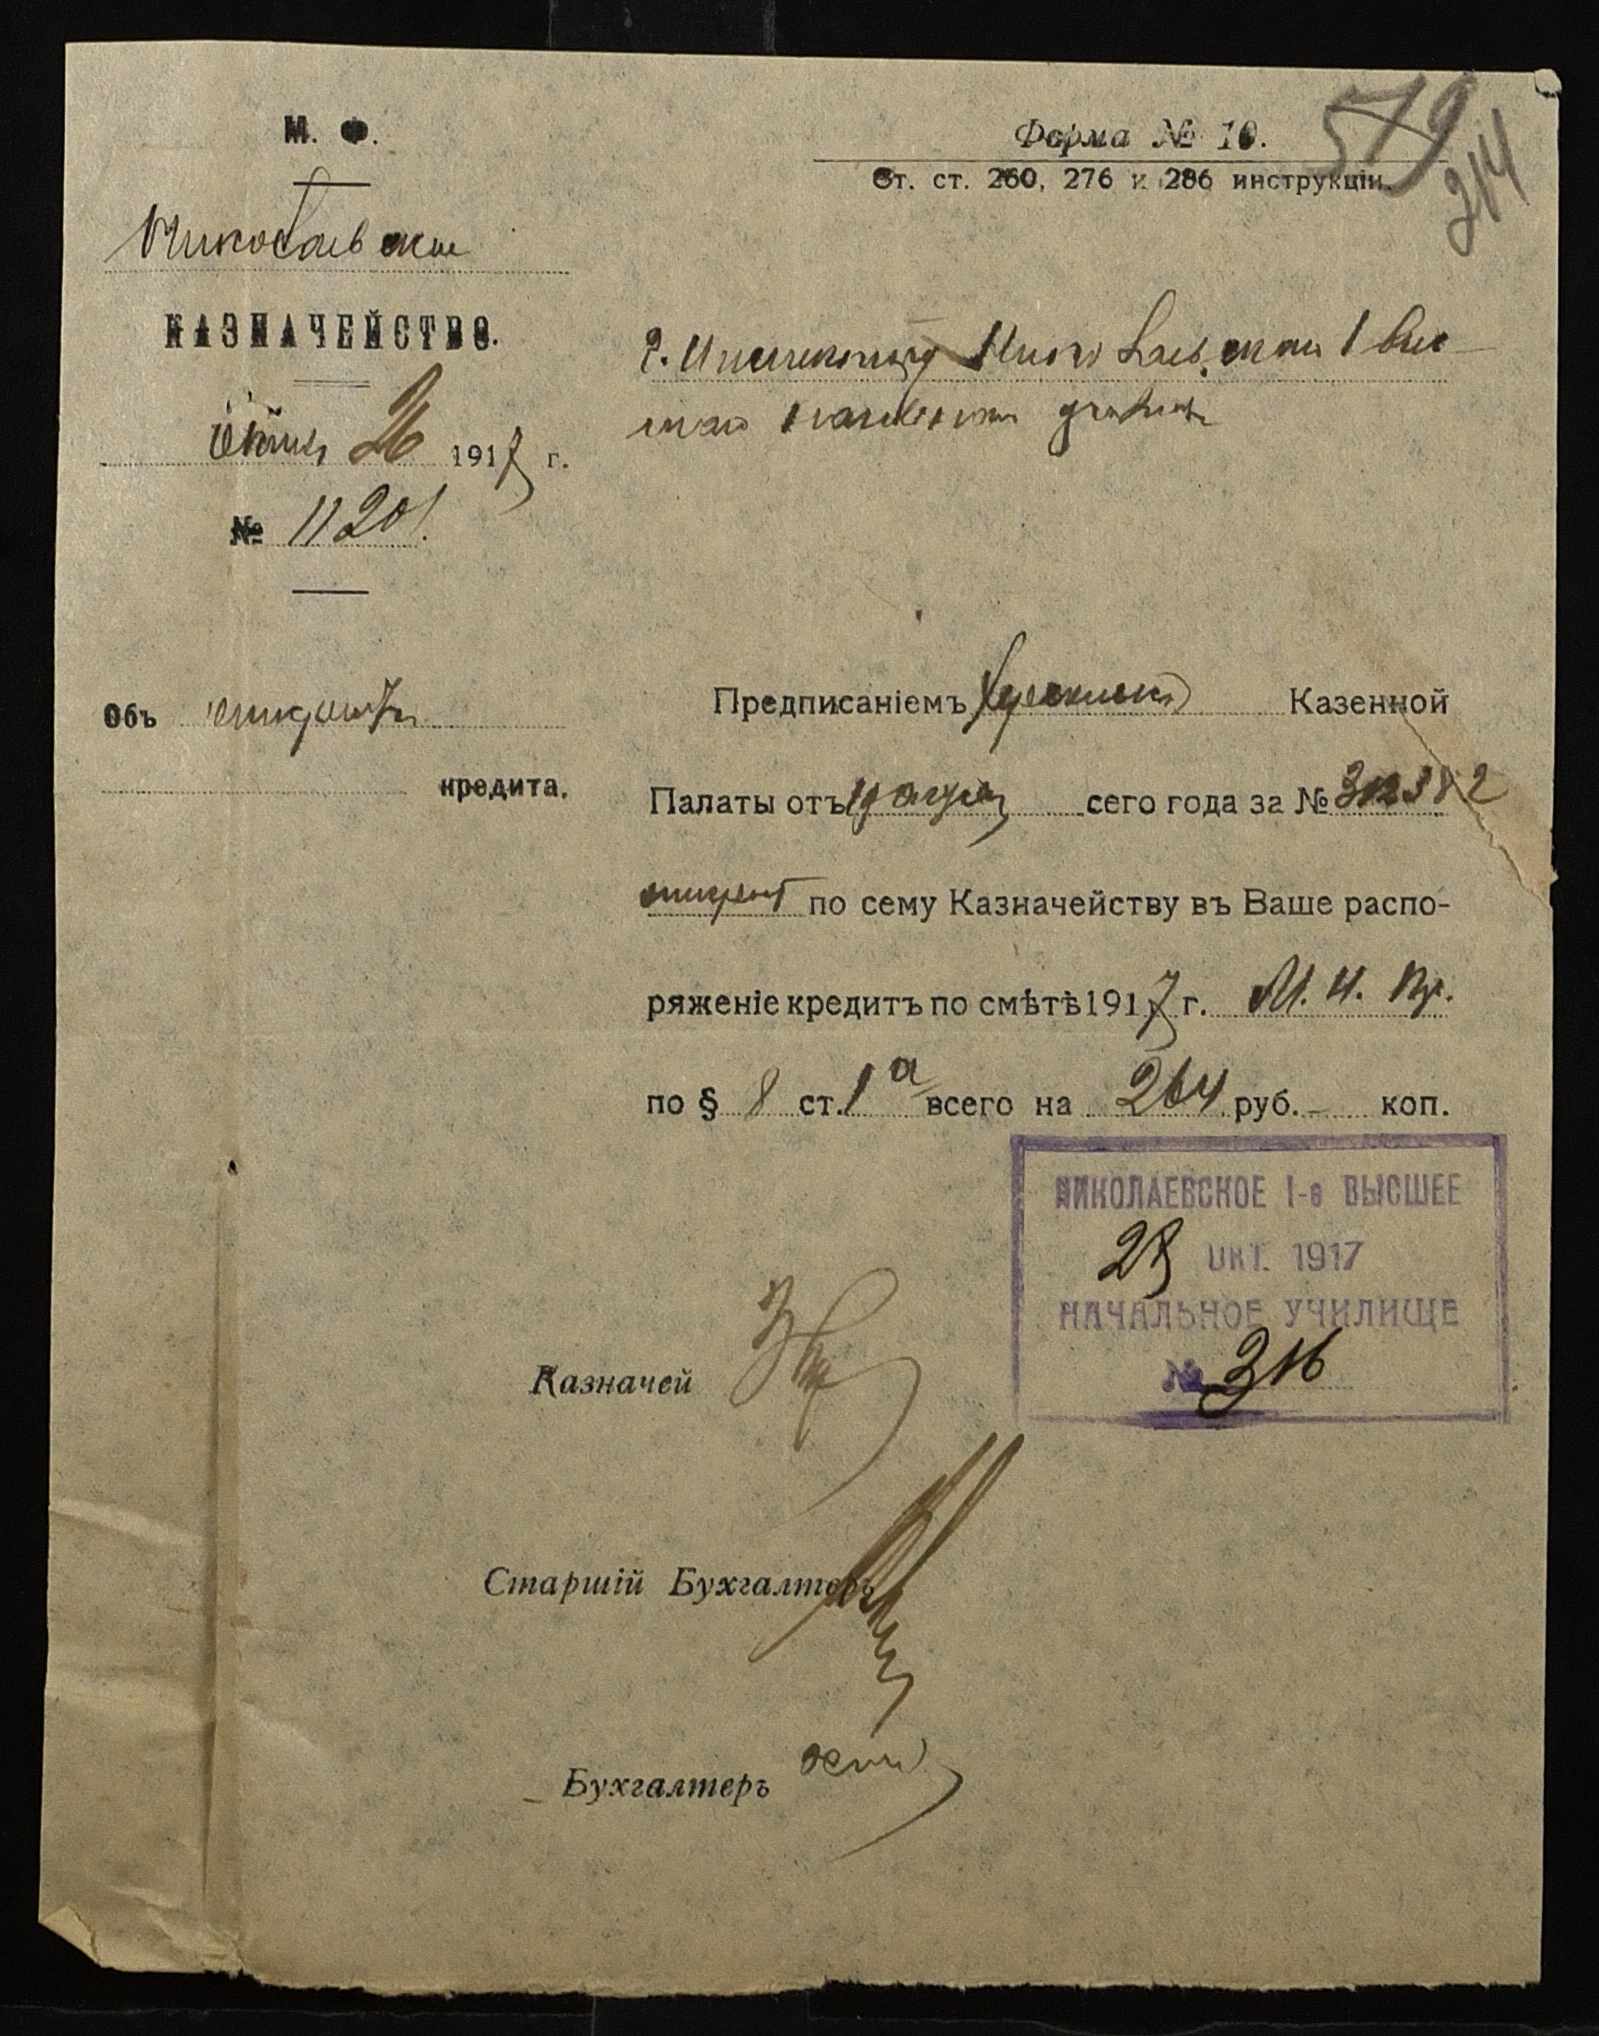 М. Ф.
Николаевское
КАЗНАЧЕЙСТВО.
26 1917 г.
№ 11201.
Форма № 10.
Ст. ст. 260, 276 и 286 инструкціи.
579
214
г. Инспектору Николаевскаго 1 выс
шаго начальнаго училища
Объ
кредита.
Предписаніемъ Херсонской Казенной
Палаты отъ сего года за №
открытъ по сему Казначейству въ Ваше распо-
ряженіе кредитъ по смѣтѣ 1917 г. М. Н. Пр.
по § 8 ст. 1а всего на 264 руб. – коп.
НИКОЛАЕВСКОЕ 1-е ВЫСШЕЕ
28 ОКТ. 1917
НАЧАЛЬНОЕ УЧИЛИЩЕ
№ 316
Казначей
Старшій Бухгалтеръ
Бухгалтеръ